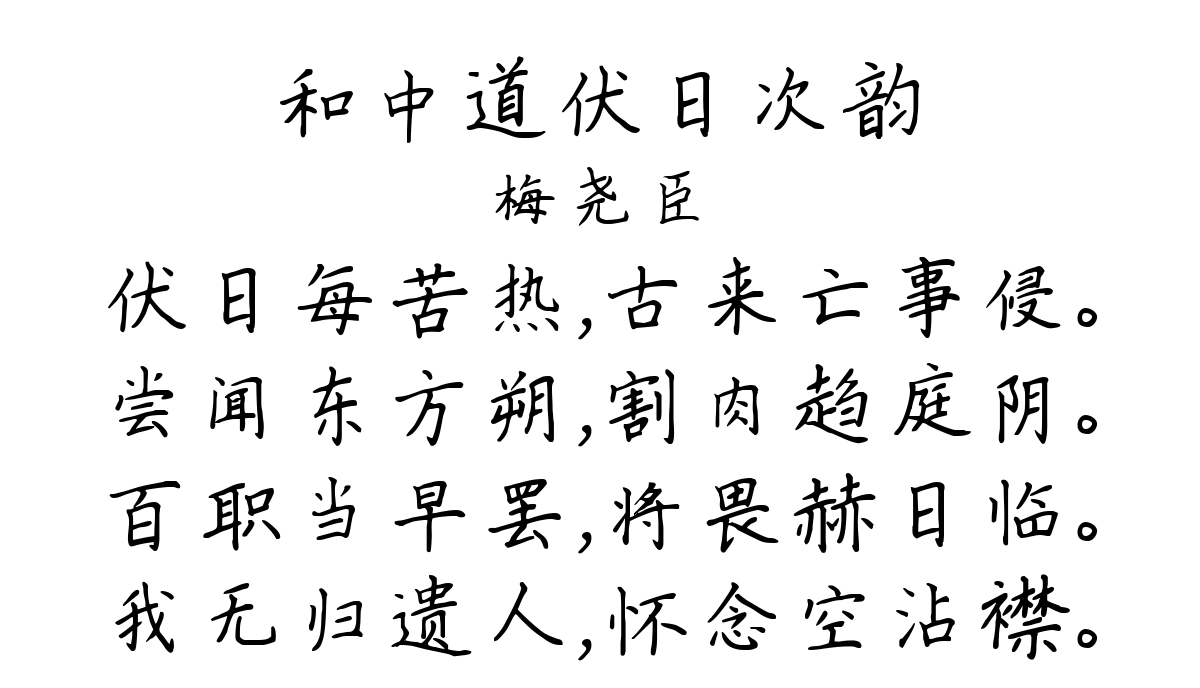 和中道伏日次韵
梅尧臣
伏日每苦热,古来亡事侵。
尝闻东方朔,割肉趋庭阴。
百职当早罢,将畏赫日临。
我无归遗人,怀念空沾襟。